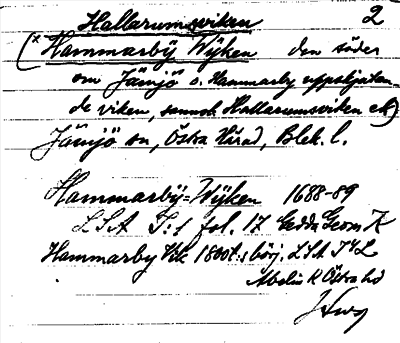 Hallarumsviken 2
(* Hammarby Wyken den söder
om Jämjö o. Hammarby uppskjutan
de viken, sannol. Hallarumsviken el.)
Jämjö sn, Östra Härad, Blek. l.
Hammarby=Wyken 1688-89
LSA I:1 fol. 17 Gedda Geom K
Hammarby Vik 1800t:s börj. LSA
Abelin K Östra hd